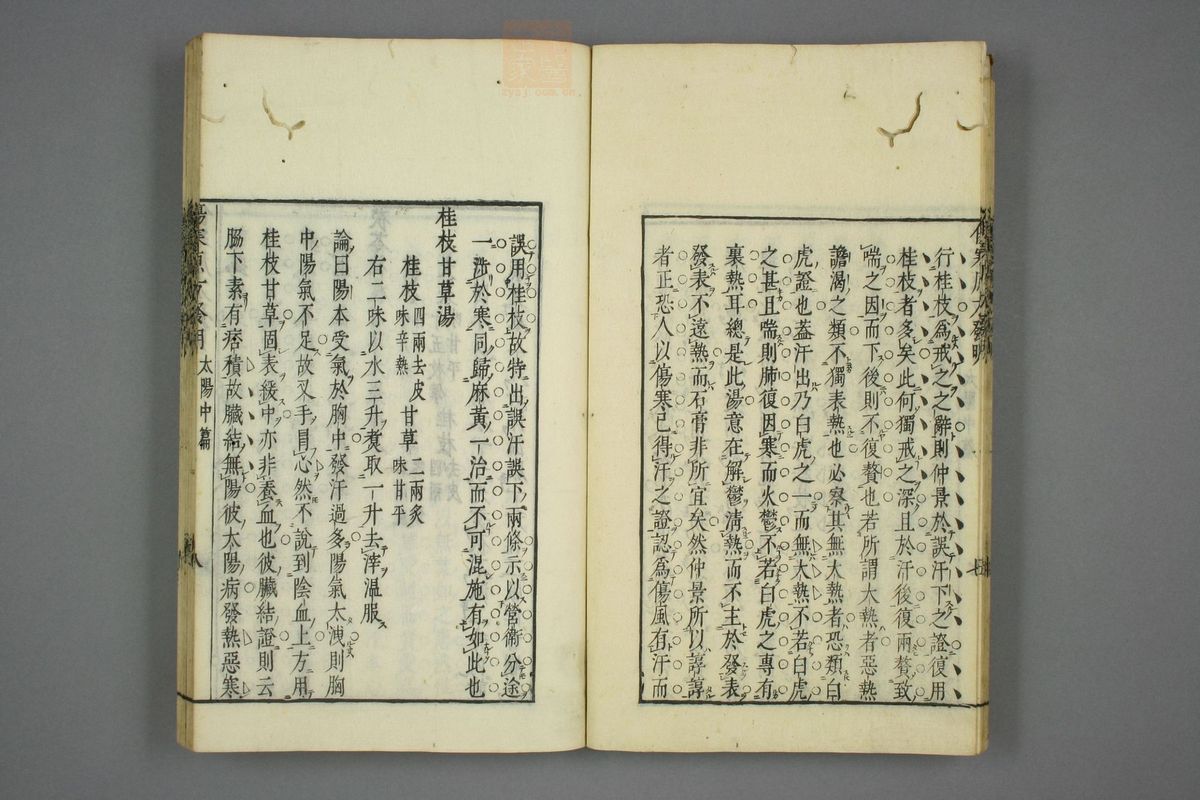 行桂枝爲戒之之辭則仲景於誤汗下之證復用
桂枝者多矣此何獨戒之深且於汗後復兩贅致
喘之因而下後則不復贅也若所謂大熱者惡熱
譫渴之類不獨表熱也必察其無大熱者恐類白
虎證也葢汗出乃白虎之一而無大熱不若白虎
之甚且喘則肺復因寒而火鬱不若白虎之專有
裏熱耳總是此湯意在解鬱淸熱而不主於發表
發表不遠熱而石膏非所宜矣然仲景所以諄諄
者正恐人以傷寒已得汗之證認爲傷風有汗而
誤用桂枝故特出誤汗誤下兩條示以營衞分途
一涉於寒同歸麻黃一治而不可混施有如此也
桂枝甘草湯
桂枝 四兩去皮味辛熱 甘草 二兩炙味甘平
右二味以水三升煑取一升去滓温服
論曰陽本受氣於胸中發汗過多陽氣太洩則胸
中陽氣不足故叉手冒心然不說到陰血上方用
桂枝甘草固表緩中亦非養血也彼臟結證則云
脇下素有痞積故臟結無陽彼太陽病發熱惡寒
太陽中篇
八
zysj.com.cn